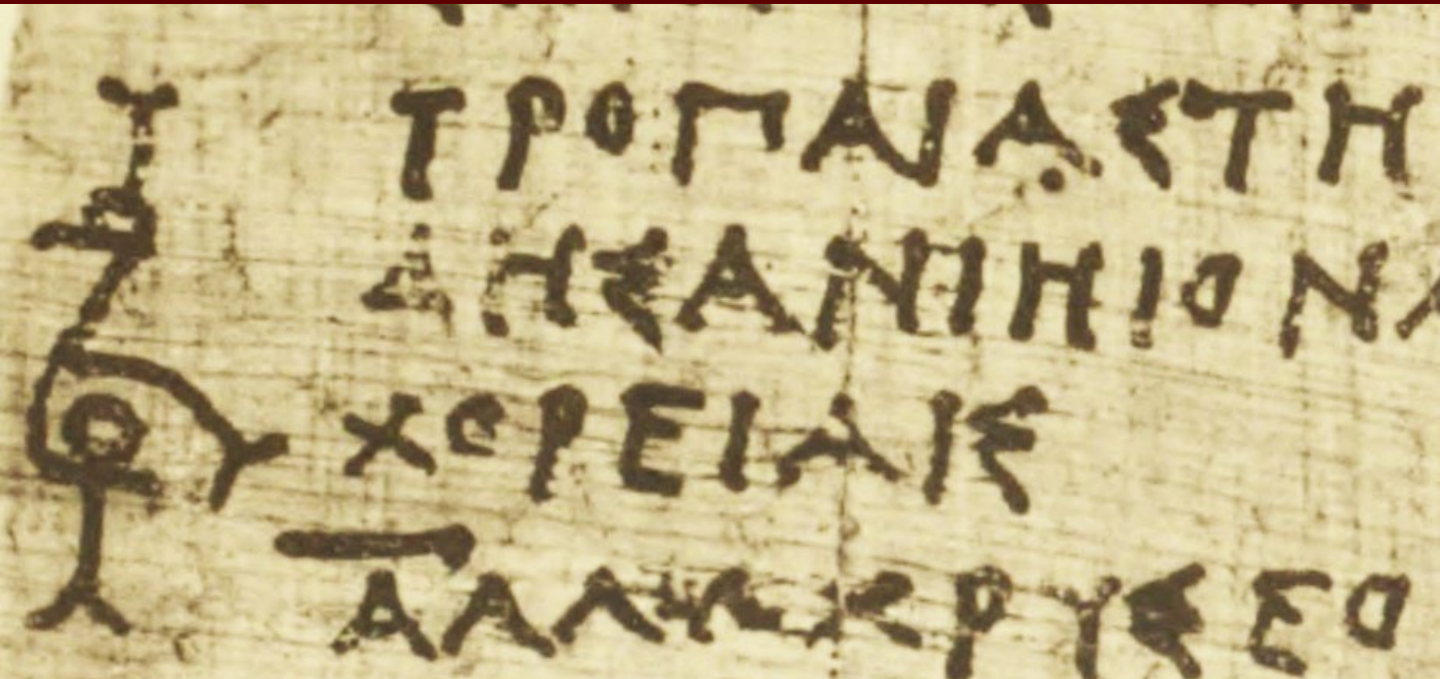 ΤΡΟΠΑΙΑΣΤΗ
ΔΗΣΑΝΙΗΙΟΝΑ
ΧΟΡΕΙΑΙΣ
ΑΛΛΩΧΡΥΣΕΟ